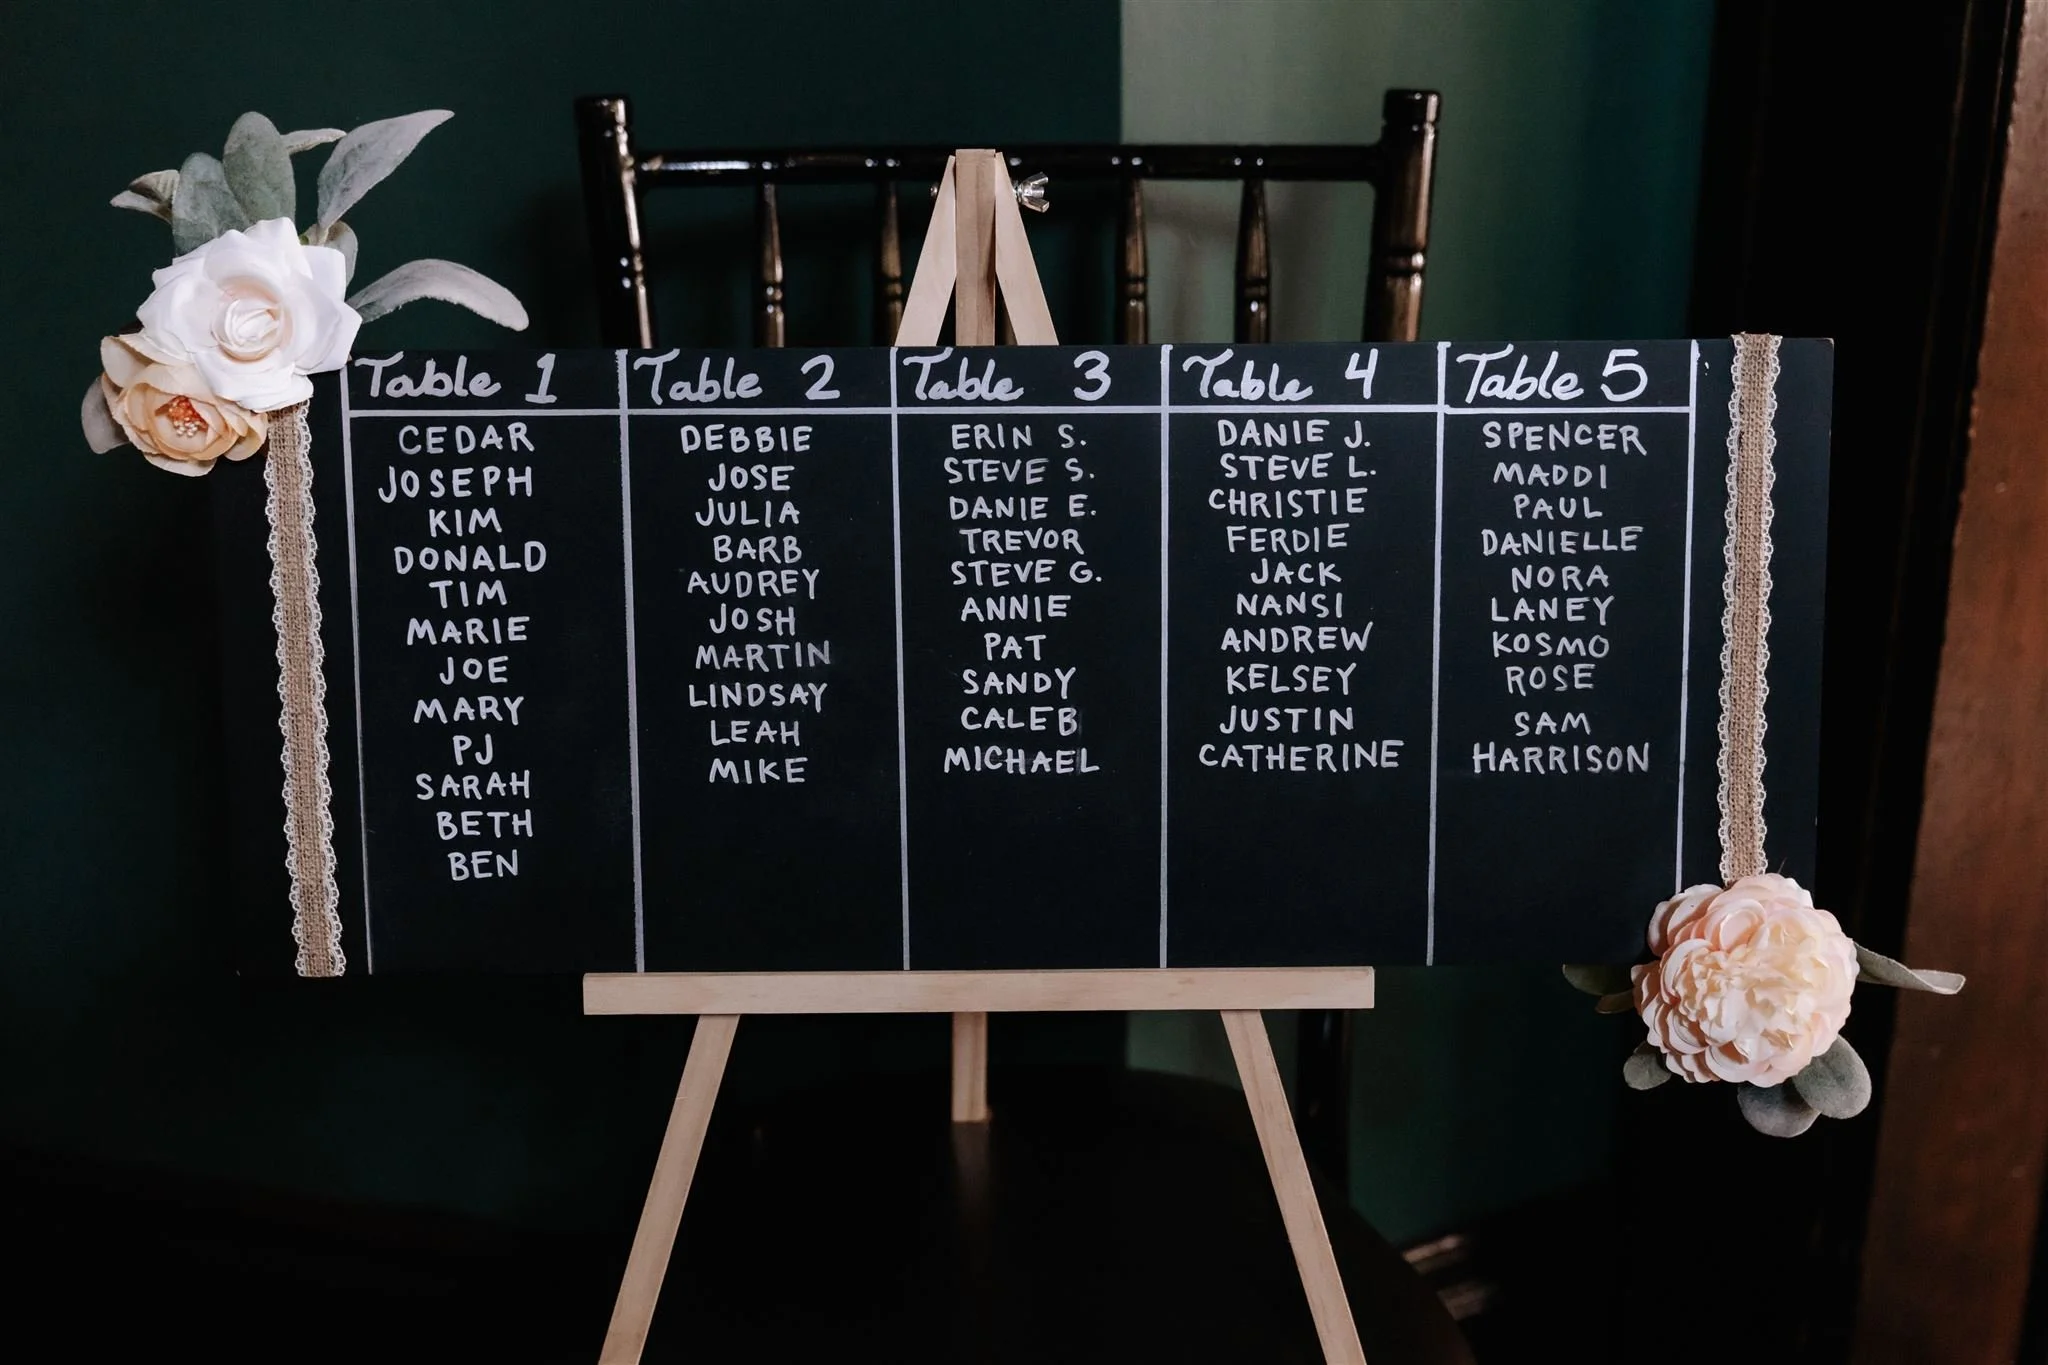 Table 1
CEDAR
JOSEPH
KIM
DONALD
TIM
MARIE
JOE
MARY
PJ
SARAH
BETH
BEN
Table 2
DEBBIE
JOSE
JULIA
BARB
AUDREY
JOSH
MARTIN
LINDSAY
LEAH
MIKE
Table 3
ERIN S.
STEVE S.
DANIE E.
TREVOR
STEVE G.
ANNIE
PAT
SANDY
CALEB
MICHAEL
Table 4
DANIE J.
STEVE L.
CHRISTIE
FERDIE
JACK
NANSI
ANDREW
KELSEY
JUSTIN
CATHERINE
Table 5
SPENCER
MADDI
PAUL
DANIELLE
NORA
LANEY
KOSMO
ROSE
SAM
HARRISON